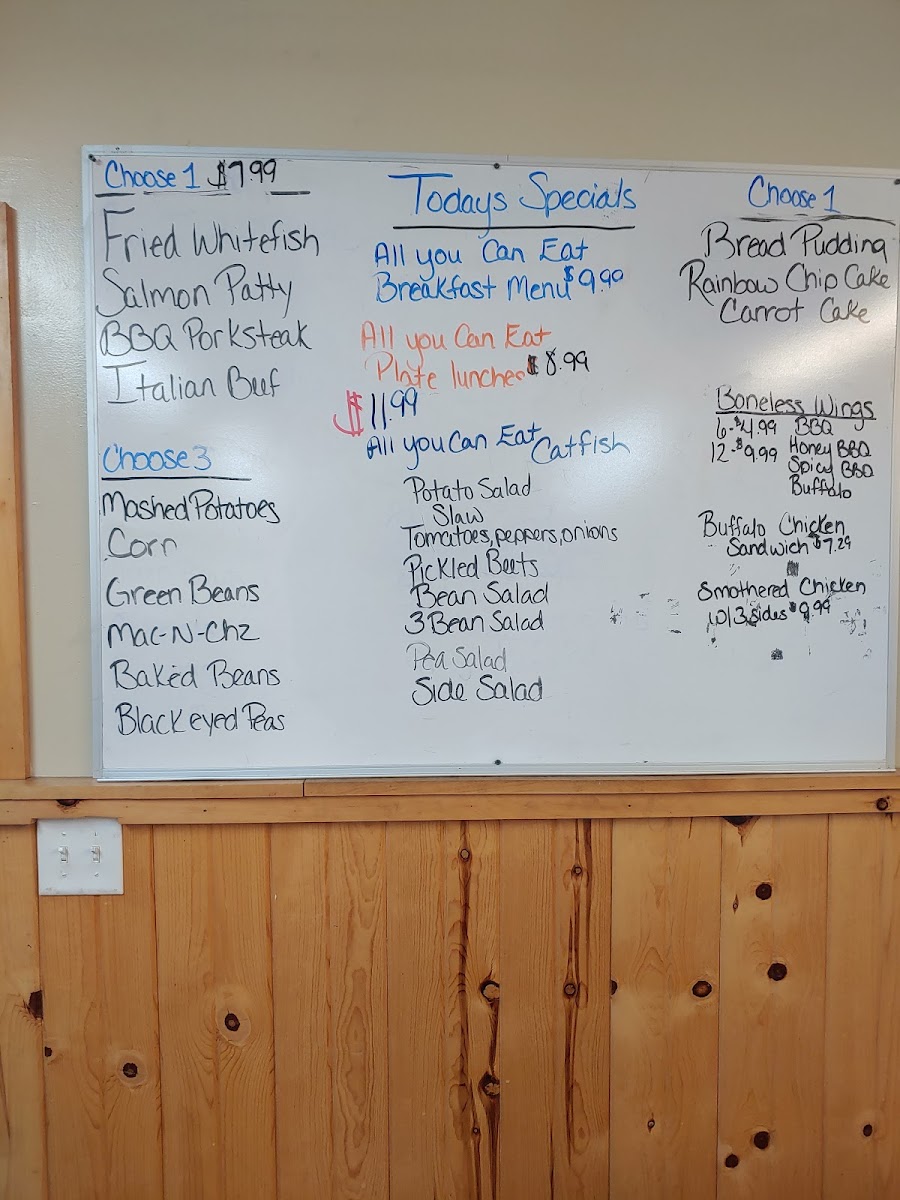 Choose 1 $7.99
Fried Whitefish
Salmon Patty
BBQ Porksteak
Italian Beef
Choose 3
Mashed Potatoes
Corn
Green Beans
Mac-N-Chz
Baked Beans
Black eyed Peas
Todays Specials
All you Can Eat
Breakfast Menu $9.99
All you Can Eat
Plate lunches $8.99
$11.99
All you Can Eat Catfish
Potato Salad
Slaw
Tomatoes, peppers, onions
Pickled Beets
Bean Salad
3 Bean Salad
Pea Salad
Side Salad
Choose 1
Bread Pudding
Rainbow Chip Cake
Carrot Cake
Boneless Wings
6-$4.99 BBQ
12-$9.99 Honey BBQ
Spicy BBQ
Buffalo
Buffalo Chicken
Sandwich $7.29
Smothered Chicken
w/3 sides $9.99